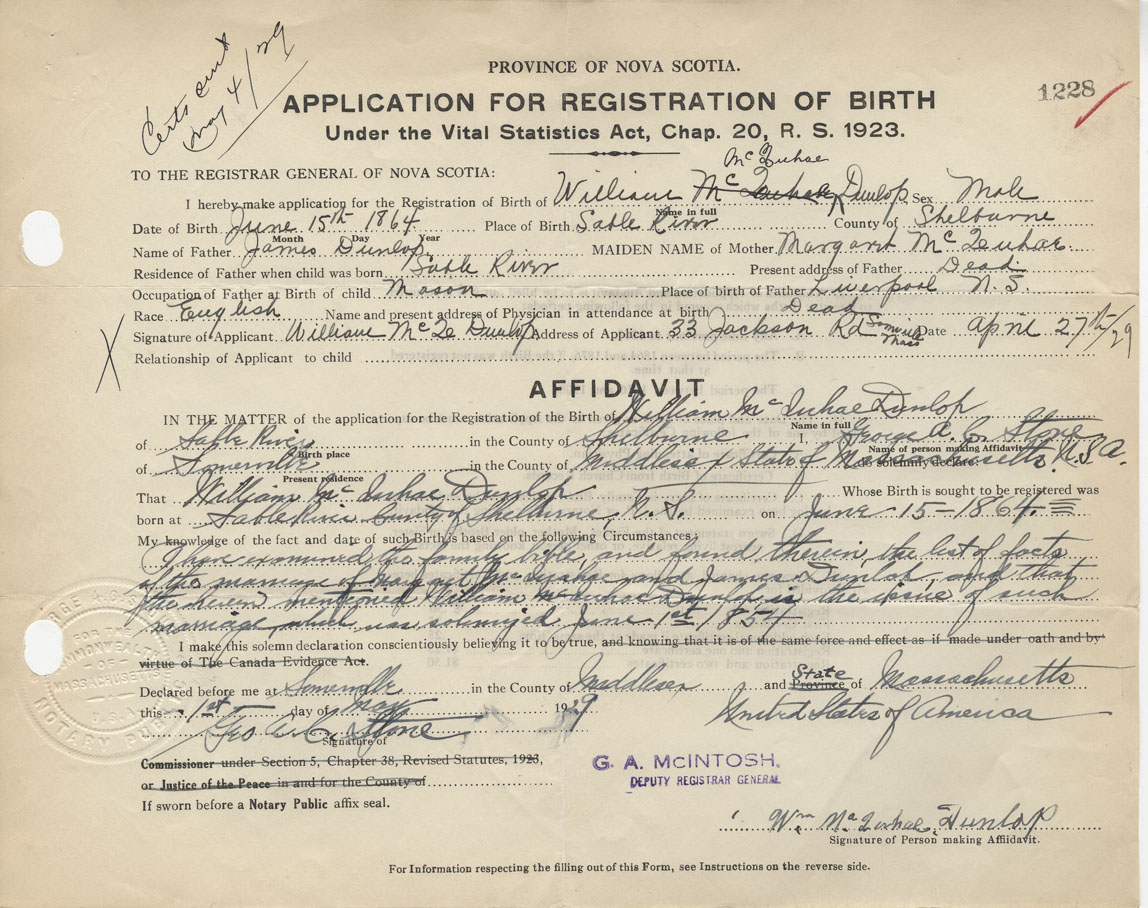 Certs sent
May 4/29
PROVINCE OF NOVA SCOTIA.
1228
APPLICATION FOR REGISTRATION OF BIRTH
Under the Vital Statistics Act, Chap. 20, R. S. 1923.
TO THE REGISTRAR GENERAL OF NOVA SCOTIA:
I hereby make application for the Registration of Birth of William Mc Dunlop Sex Male
Name in full
Date of Birth June 15th 1864 Place of Birth Sable River County of Shelburne
Month Day Year
Name of Father James Dunlop MAIDEN NAME of Mother Margaret Mc
Residence of Father when child was born Sable River Present address of Father Dead
Occupation of Father at Birth of child Mason Place of birth of Father Liverpool N. S.
Race English Name and present address of Physician in attendance at birth Dead
Signature of Applicant William Mc Dunlop Address of Applicant 33 Jackson Rd Mass Date April 27th/29
X
Relationship of Applicant to child
AFFIDAVIT
IN THE MATTER of the application for the Registration of the Birth of William Mc Dunlop
Name in full
of Sable River in the County of Shelburne I, George A. C. Stone
Birth place Name of person making Affidavit
of Somerville in the County of Middlesex State of Massachusetts U.S.A.
Present residence do solemnly declare
That William Mc Dunlop Whose Birth is sought to be registered was
born at Sable River County of Shelburne, N. S. on June 15-1864.
My knowledge of the fact and date of such Birth is based on the following Circumstances:
I have examined the family bible, and found therein, the list of facts
of the marriage of Margaret Mc and James Dunlop, and that
the herein mentioned William Mc Dunlop is the issue of such
marriage, which was solmized June 1st, 1854.
I make this solemn declaration conscientiously believing it to be true, and knowing that it is of the same force and effect as if made under oath and by
virtue of The Canada Evidence Act.
Declared before me at Somerville in the County of Middlesex and Province State of Massachusetts
this 1st day of May 1929 United States of America
Geo. A. C. Stone
Signature of
Commissioner under Section 5, Chapter 38, Revised Statutes, 1923,
or Justice of the Peace in and for the County of
If sworn before a Notary Public affix seal.
G. A. McINTOSH.
DEPUTY REGISTRAR GENERAL
Wm Mc Dunlop
Signature of Person making Affidavit.
For Information respecting the filling out of this Form, see Instructions on the reverse side.
COMMONWEALTH
OF
MASSACHUSETTS
U.S.A.
NOTARY PUBLIC